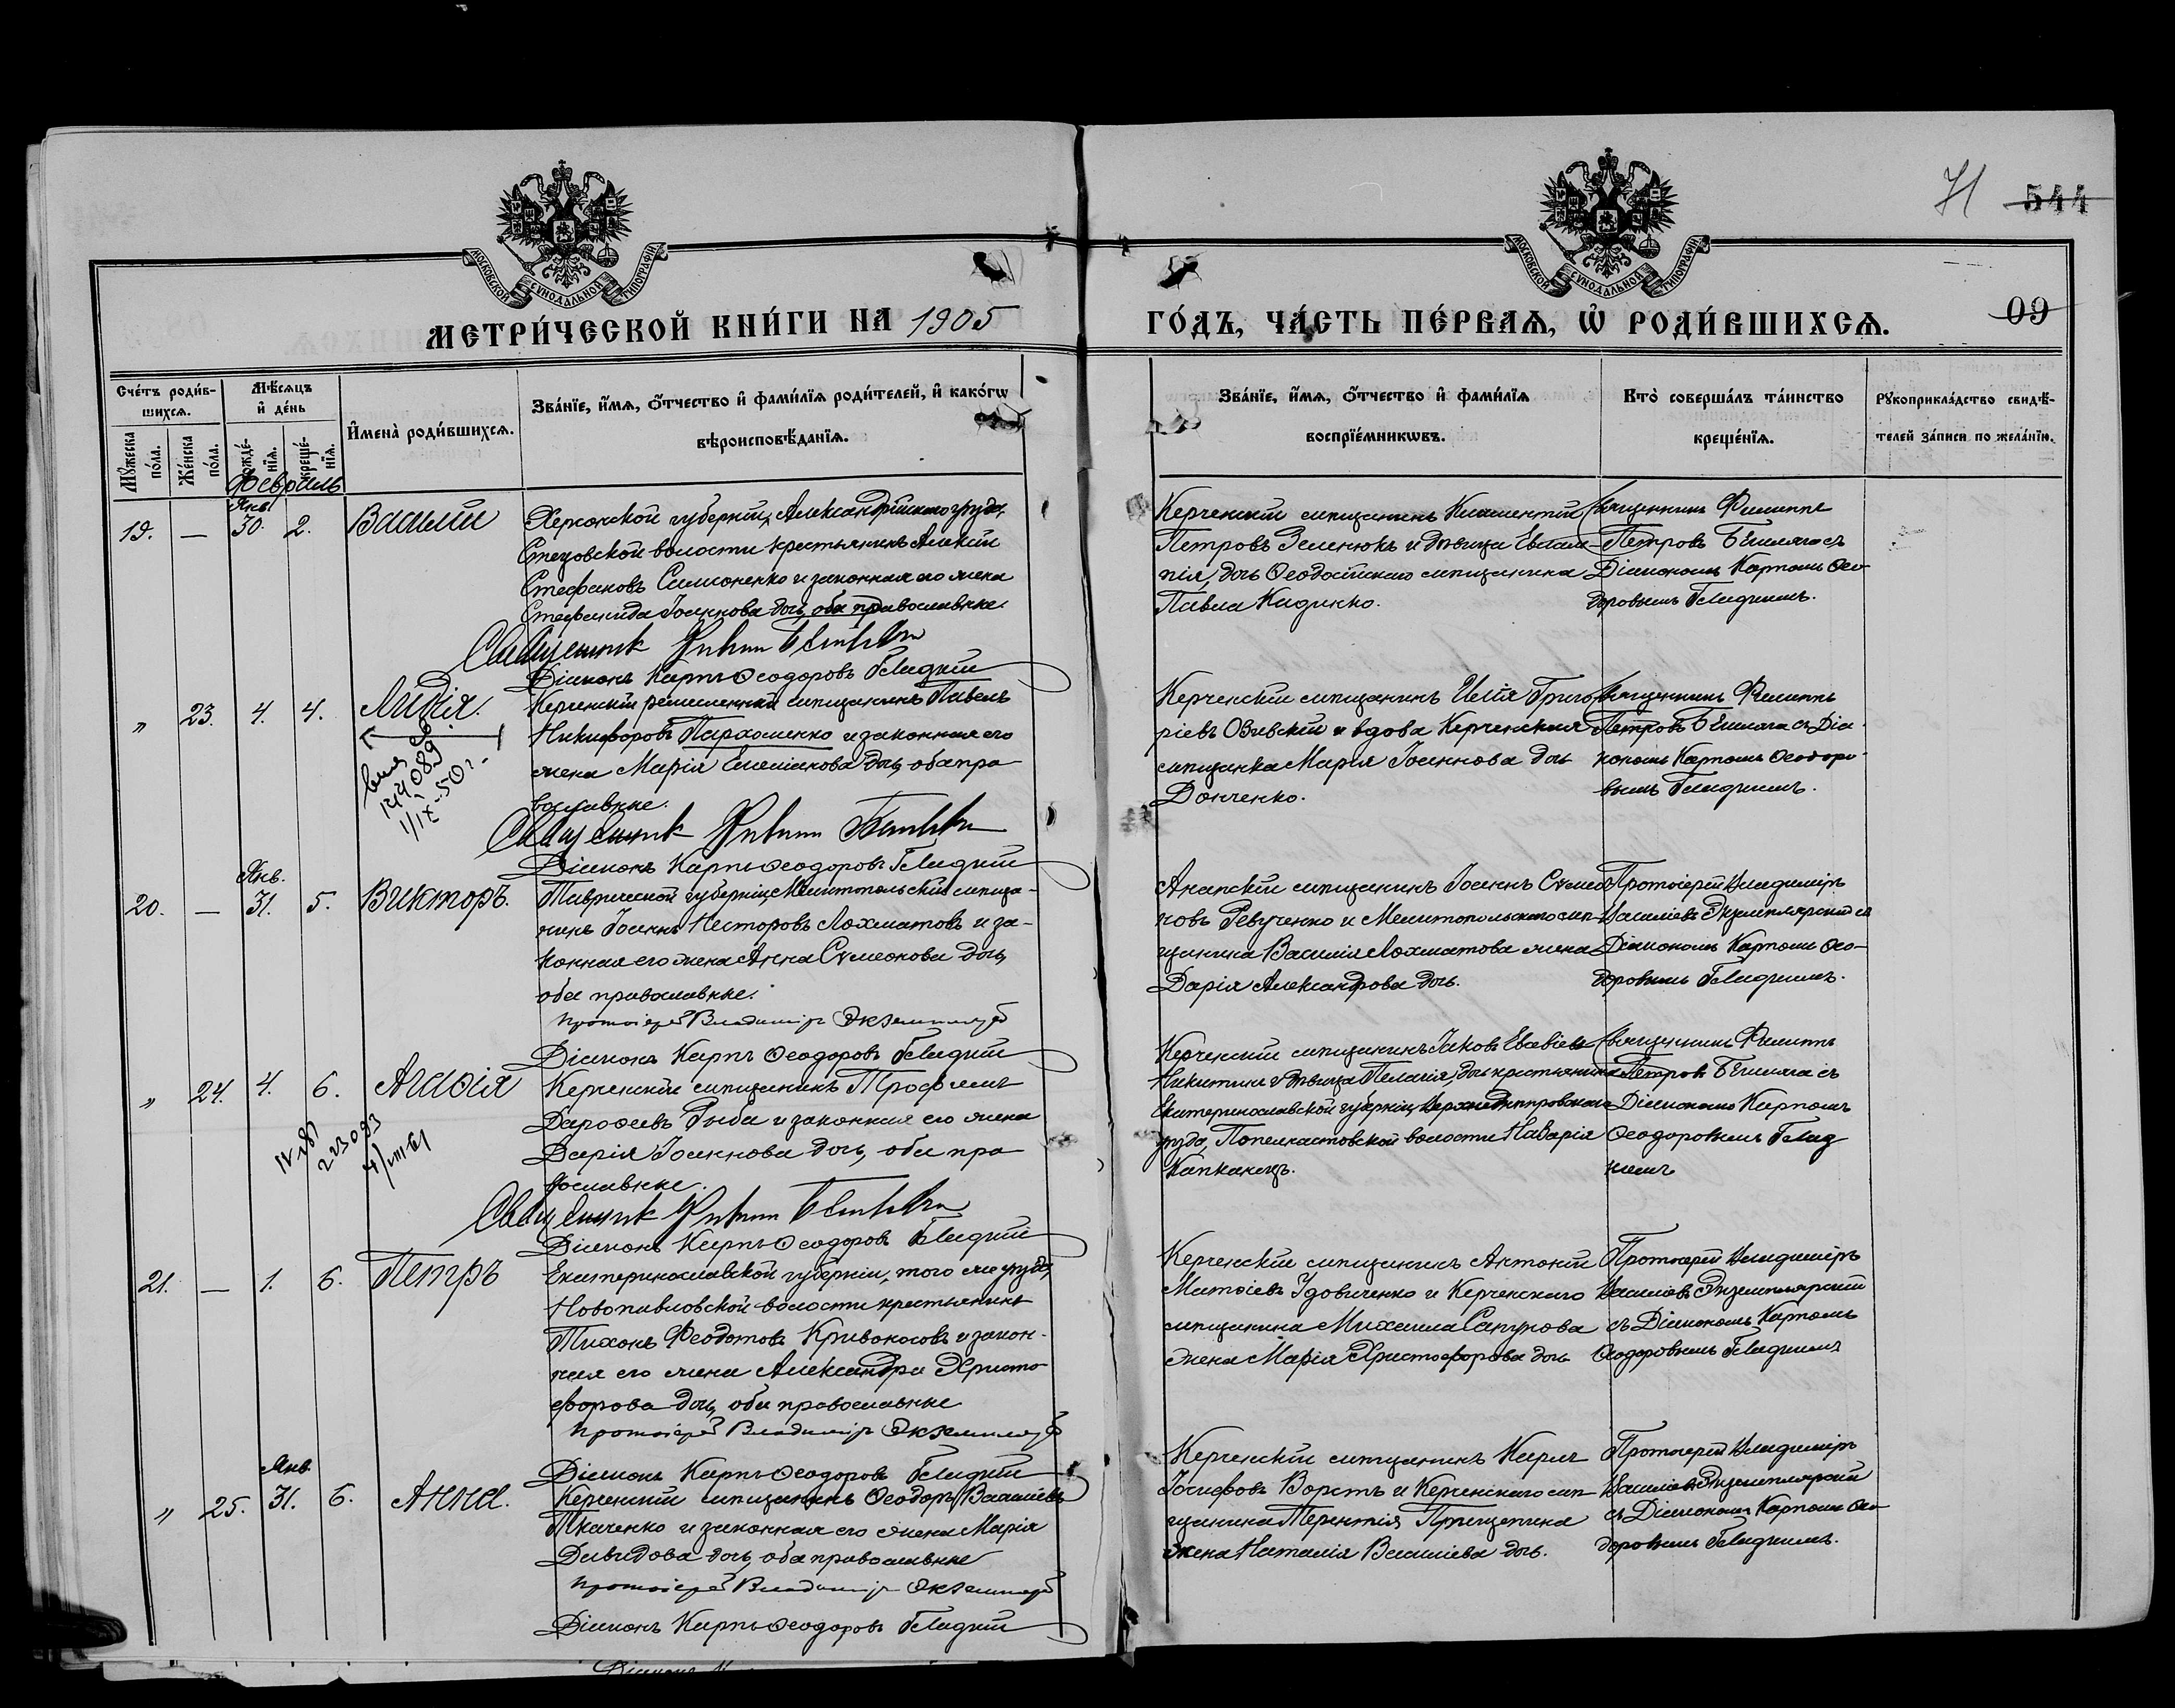 71 544
МОСКОВСКОЙ СѴНОДАЛЬНОЙ ТИПОГРАФІИ
МОСКОВСКОЙ СѴНОДАЛЬНОЙ ТИПОГРАФІИ
09
МЕТРИ́ЧЕСКОЙ КНИ́ГИ НА 1905
ГО́ДЪ, ЧА́СТЬ ПЕ́РВАѦ, Ѡ҆ РОДИ́ВШИХСѦ.
Сче́тъ роди́в-
шихсѧ.
Мѣ́сѧцъ
и҆ де́нь
И҆мена̀ роди́вшихсѧ.
Зва́нїе, и҆́мѧ, ѻ҆́тчество и҆ фами́лїѧ роди́телей, и҆ како́гѡ
вѣроисповѣ́данїѧ.
Мꙋ́жеска
по́ла.
Же́нска
по́ла.
рожде́-
нїѧ.
креще́-
нїѧ.
Зва́нїе, и҆́мѧ, ѻ҆́тчество и҆ фами́лїѧ
воспрїе́мникѡвъ.
Кто̀ соверша́лъ та́инство
креще́нїѧ.
Рꙋкоприкла́дство свидѣ́-
телей за́писи по жела́нїю.
Февраль
Янв.
19. — 30. 2. Василій
Херсонской губерніи, Александрійскаго уѣзда,
волости крестьянинъ Алексій
Стефановъ Симоненко и законная его жена
Стефанида Іоаннова дочь, оба православные.
Священник Филипп
Діаконъ Карпъ Ѳеодоровъ Гладкій
Керченскій мѣщанинъ Климентій
Петровъ Зеленюкъ и дѣвица Евлам-
пія, дочь Ѳеодосійскаго мѣщанина
Павла Кидинко.
Священникъ Филиппъ
Петровъ съ
Діакономъ Карпомъ Ѳео-
доровымъ Гладкимъ.
„ 23. 4. 4. Лидія.
144089
1/IX-50 г.
Керченскій мѣщанинъ Павелъ
Никифоровъ Пархоменко и законная его
жена Марія дочь, оба пра
вославные.
Священник Филипп
Діаконъ Карпъ Ѳеодоровъ Гладкій
Керченскій мѣщанинъ Илія Григо
ріевъ и вдова Керченская
мѣщанка Марія Іоаннова дочь
Донченко.
Священникъ Филиппъ
Петровъ съ Діа
кономъ Карпомъ Ѳеодоро-
вымъ Гладкимъ.
Янв.
20. — 31. 5. Викторъ.
Таврической губерніи, Мелитопольскій мѣща-
нинъ Іоаннъ Несторовъ Лохматовъ и за-
конная его жена Анна Сѵмеонова дочь,
оба православные.
Протоіерей Владиміръ Экземплярскій
Діаконъ Карпъ Ѳеодоровъ Гладкій
Анапскій мѣщанинъ Іоаннъ Сѵмео
новъ Ревученко и Мелитопольскаго мѣ-
щанина Василія Лохматова жена
Дарія Александрова дочь.
Протоіерей Владиміръ
Василіевъ Экземплярскій съ
Діакономъ Карпомъ Ѳео-
доровымъ Гладкимъ.
„ 24. 4. 6. Агаѳія
223093
Керченскій мѣщанинъ Трофимъ
Дароѳеевъ Рыба и законная его жена
Дарія Іоаннова дочь, оба пра
вославные.
Священник Филипп
Діаконъ Карпъ Ѳеодоровъ Гладкій
Керченскій мѣщанинъ Іаковъ
Никитинъ и дѣвица Пелагія, дочь крестьянина
Екатеринославской губерніи, Верхнеднѣпровскаго
уѣзда, волости
Капканецъ.
Священникъ Филиппъ
Петровъ съ
Діакономъ Карпомъ
Ѳеодоровымъ Глад
кимъ
21. — 1. 6. Петръ
Екатеринославской губерніи, того же уѣзда,
Новопавловской волости крестьянинъ
Тихонъ Феодотовъ Кривоносовъ и закон-
ная его жена Александра Христо
форова дочь, оба православные
Протоіерей Владиміръ Экземплярскій
Діаконъ Карпъ Ѳеодоровъ Гладкій
Керченскій мѣщанинъ Антоній
Матѳіевъ Удовиченко и Керченскаго
мѣщанина Михаила Сапунова
жена Марія Христофорова дочь
Протоіерей Владиміръ
Василіевъ Экземплярскій
съ Діакономъ Карпомъ
Ѳеодоровымъ Гладкимъ
Янв
„ 25. 31. 6. Анна.
Керченскій мѣщанинъ Ѳеодоръ Василіевъ
Ткаченко и законная его жена Марія
Давидова дочь, оба православные
Протоіерей Владиміръ Экземплярскій
Діаконъ Карпъ Ѳеодоровъ Гладкій
Керченскій мѣщанинъ Карлъ
Іосифовъ Ворстъ и Керченскаго мѣ
щанина Терентія
жена Наталія Василіева дочь.
Протоіерей Владиміръ
Василіевъ Экземплярскій
съ Діакономъ Карпомъ Ѳео-
доровымъ Гладкимъ.